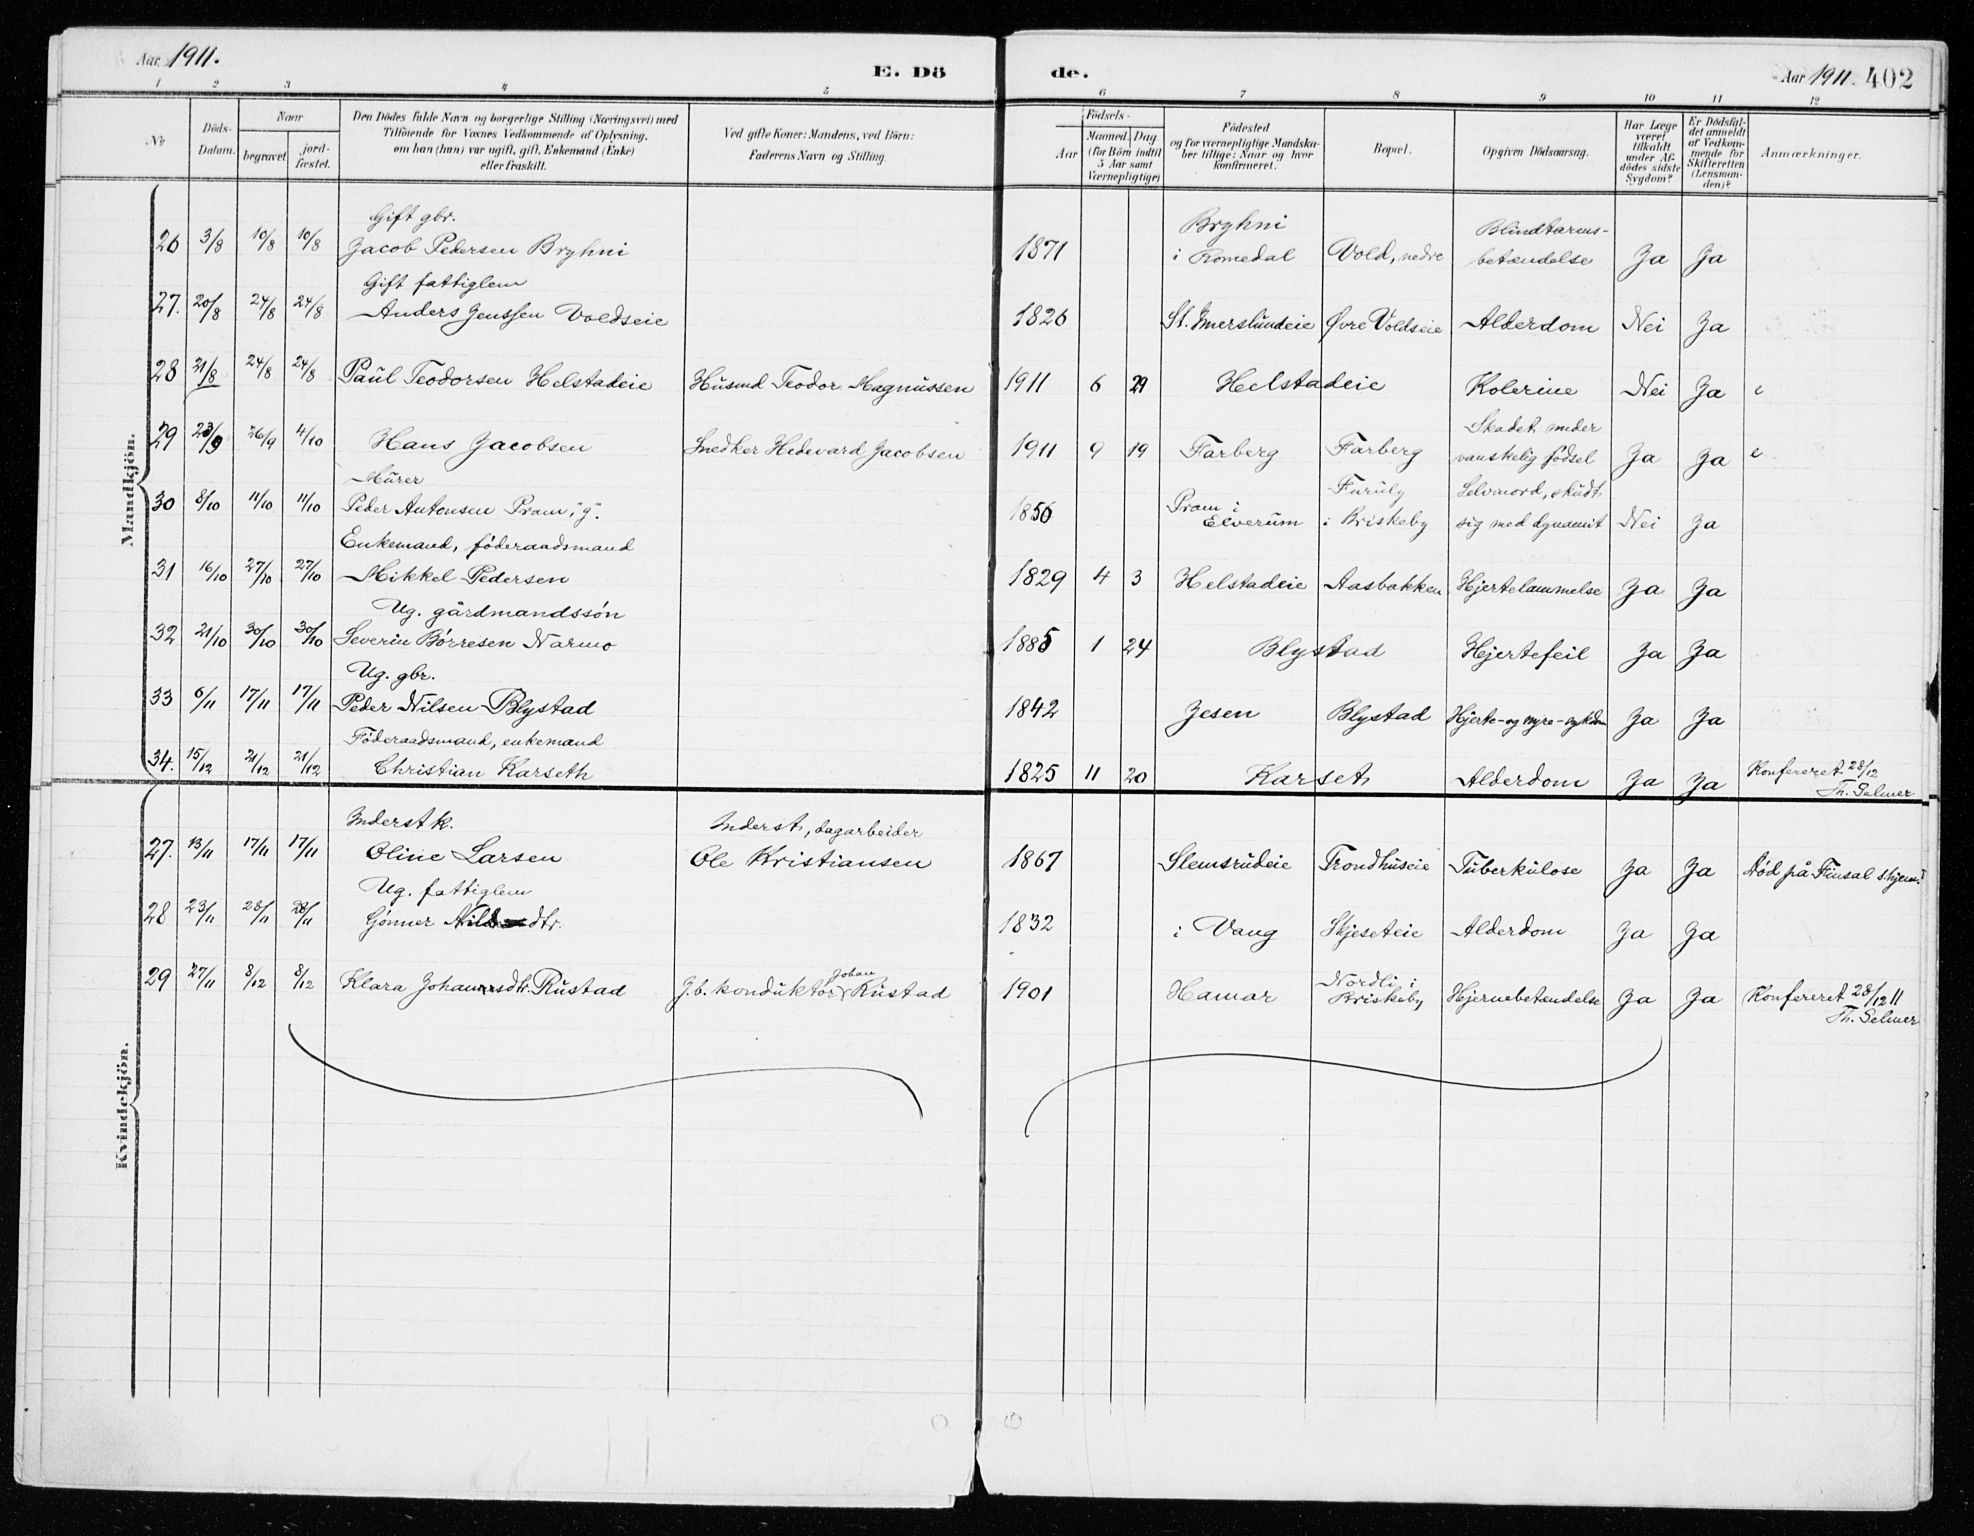 Aar 1911.
E. Dö
de.
Aar 1911. 402
1 2 3 4 5 6 7 8 9 10 11 12
Nr
Döds-Datum.
Naar
begravet.
jord-fæstet.
Den Dödes fulde Navn og borgerlige Stilling (Næringsvei) med
Tilföiende for Voxnes Vedkommende af Oplysning,
om han (hun) var ugift, gift, Enkemand (Enke)
eller fraskilt.
Ved gifte Koner: Mandens, ved Börn:
Faderens Navn og Stilling.
Födsels-
Aar
Maaned. Dag.
(for Börn indtil
5 Aar samt
Værnepligtige)
Födested
og for værnepligtige Mandska-
ber tillige: Naar og hvor
konfirmeret.
Bopæl.
Opgiven Dödsaarsag.
Har Læge
været
tilkaldt
under Af-
dödes sidste
Sygdom?
Er Dödsfal-
det anmeldt
af Vedkom-
mende for
Skifteretten
(Lensman-
den)?
Anmærkninger.
Mandkjön.
Gift gbr. Bryhni Blindtarms-
26 3/8 10/8 10/8 Jacob Pedersen Bryhni 1871 i Romedal Vold, nedre betændelse Ja Ja
Gift fattiglem
27. 20/8 24/8 24/8 Anders Jenssen Voldseie 1826 St. Imerslundeie Øvre Voldseie Alderdom Nei Ja
28 21/8 24/8 24/8 Paul Teodorsen Helstadeie Husmd Teodor Magnussen 1911 6 29 Helstadeie Kolerine Nei Ja
Skadet under
29 23/9 26/9 4/10 Hans Jacobsen Snedker Hedevard Jacobsen 1911 9 19 Farberg Farberg vanskelig födsel Ja Ja
Murer Pram i Furuly Selvmord, skudt
30 8/10 11/10 11/10 Peder Antonsen Pram, "g". 1856 Elverum i Briskeby sig med dynamit Nei Ja
Enkemand, föderaadsmand
31 16/10 27/10 27/10 Mikkel Pedersen 1829 4 3 Helstadeie Aasbakken Hjertelammelse Ja Ja
Ug. gårdmandssön
32 21/10 30/10 30/10 Severin Börresen Narmo 1885 1 24 Blystad Hjertefeil Ja Ja
Ug. gbr.
33 6/11 17/11 17/11 Peder Nilsen Blystad 1842 Jesen Blystad Hjerte- og nyre-sykdom Ja Ja
Föderaadsmand, enkemand
34. 15/12 21/12 21/12 Christian Karseth 1825 11 20 Karset Alderdom Ja Ja Konfereret 28/12
Th. Selmer
Kvindekjön.
Inderst k. Inderst, dagarbeider
27. 13/11 17/11 17/11 Oline Larsen Ole Kristiansen 1867 Slemsrudeie Trondhuseie Tuberkulose Ja Ja Död på Finsal s.hjem
Ug. fattiglem
28 23/11 28/11 28/11 Gönner dtr. 1832 i Vang Skjeseteie Alderdom Ja Ja
Johan Nordli i
29 27/11 8/12 8/12 Klara Johannsdtr. Rustad J.b. konduktör Rustad 1901 Hamar Briskeby Hjernebetændelse Ja Ja Konfereret 28/12 11
Th. Selmer